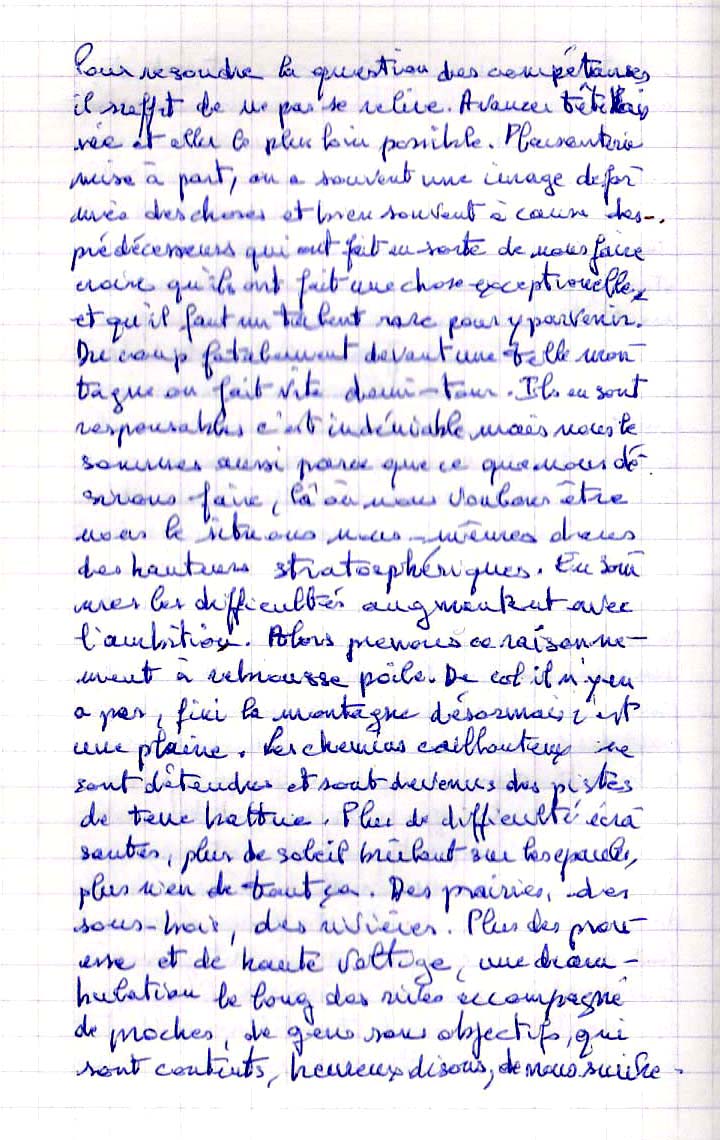 Pour resoudre la question des compétences
il suffit de ne pas se relire. Avancer tête bais
sée et aller le plus loin possible. Plaisanterie
mise à part, on a souvent une image defor
mées des choses et bien souvent à cause des
prédécesseurs qui ont fait en sorte de nous faire
croire qu'ils ont fait une chose exceptionelle,
et qu'il faut un talent rare pour y parvenir.
Du coup fatalement devant une telle mon
tagne on fait vite demi-tour. Ils en sont
responsables c'est indéniable mais nous le
sommes aussi parce que ce que nous dé-
sirons faire, là où nous voulons être
nous le situons nous-mêmes dans
des hauteurs stratosphériques. En som
mes les difficultés augmentent avec
l'ambition. Alors prenons ce raisonne-
ment à rebrousse poile. De col il n'y en
a pas, fini la montagne désormais c'est
une plaine. Les chemins caillouteux se
sont détendus et sont devenus des pistes
de terre battue. Plus de difficulté écra
santes, plus de soleil brûlant sur les epaules,
plus rien de tout ça. Des prairies, des
sous-bois, des rivières. Plus des prou
esse et de haute voltige, une déam-
bulation le long des rives accompagné
de proches, de gens sans objectifs, qui
sont contents, heureux disons, de nous suivre.